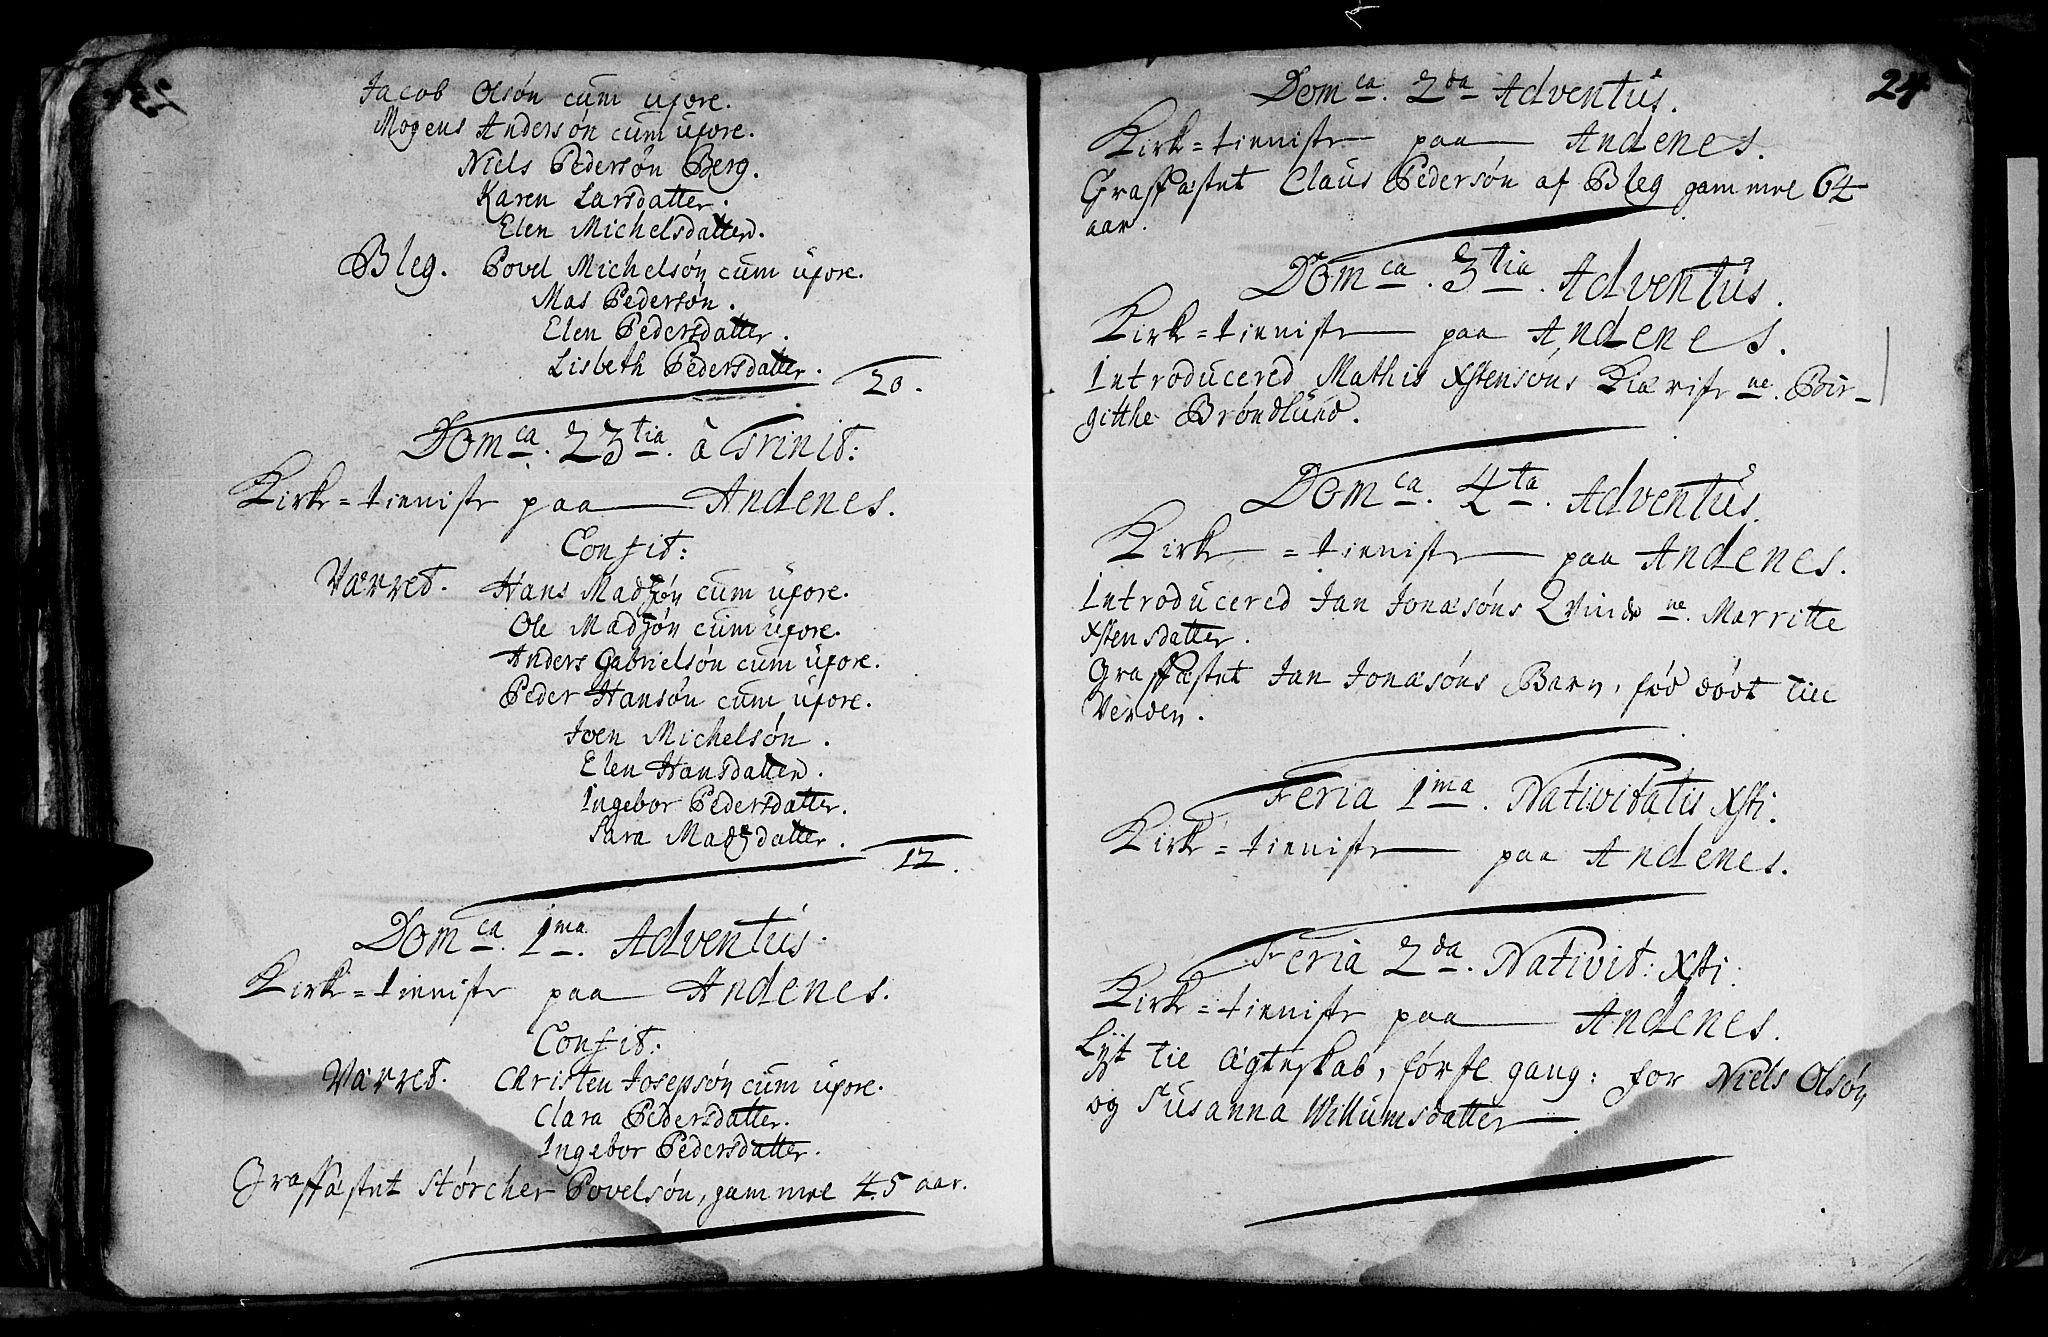 Jacob Olsøn cum uxore.
Mogens Andersøn cum uxore.
Niels Pedersøn Berg.
Karen Larsdatter.
Elen Michelsdatter.
Bleg. Povel Michelsøn cum uxore.
Mas Pedersøn.
Elen Pedersdatter.
Lisbeth Pedersdatter.
20.
Dom ca. 23 tia. à Trinit:
Kirke=tieniste paa Andenes.
Confit:
Værred. Hans Madzøn cum uxore.
Ole Madzøn cum uxore.
Anders Gabrielsøn cum uxore.
Peder Hansøn cum uxore.
Joen Michelsøn.
Elen Hansdatter.
Ingebor Pedersdatter.
Sara Madzdatter.
12.
Dom ca. 1 ma. Adventus.
Kirke=tieniste paa Andenes.
Confit:
Værred. Christen Josepsøn cum uxore.
Clara Pedersdatter.
Ingebor Pedersdatter.
Graffæstet Størcher Povelsøn, gammel 45 aar.
24
Dom ca. 2 da Adventus.
Kirke=tieniste paa Andenes.
Graffæstet Claus Pedersøn af Bleg gammel 64
aar.
Dom ca. 3 tia. Adventus.
Kirke=tieniste paa Andenes.
Introducered Mathis Xstensøns Kieriste ne. Bir-
githe Brøndlund.
Dom ca. 4 ta. Adventus.
Kirke=tieniste paa Andenes.
Introducered Jan Jonæsøns Qvinde ne. Marritte
Xstensdatter.
Graffæstet Jan Jonæsøns Barn, fød dødt till
Verden.
Feria 1 ma. Nativitatis Xsti:
Kirke=tieniste paa Andenes.
Feria 2 da. Nativit: Xsti:
Kirke=tieniste paa Andenes.
Lyst til Ægteskab, første gang: for Niels Olsøn
og Susanna Willumsdatter.